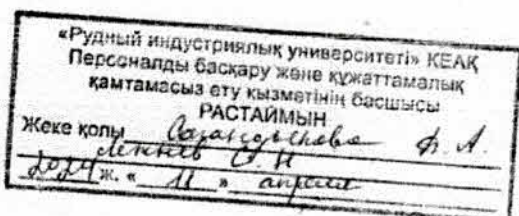 «Рудный индустриялық университеті» КЕАҚ
Персоналды басқару және құжаттамалық
қамтамасыз ету қызметінің басшысы
РАСТАЙМЫН
Жеке қолы
2024 ж. « 11 » апреля